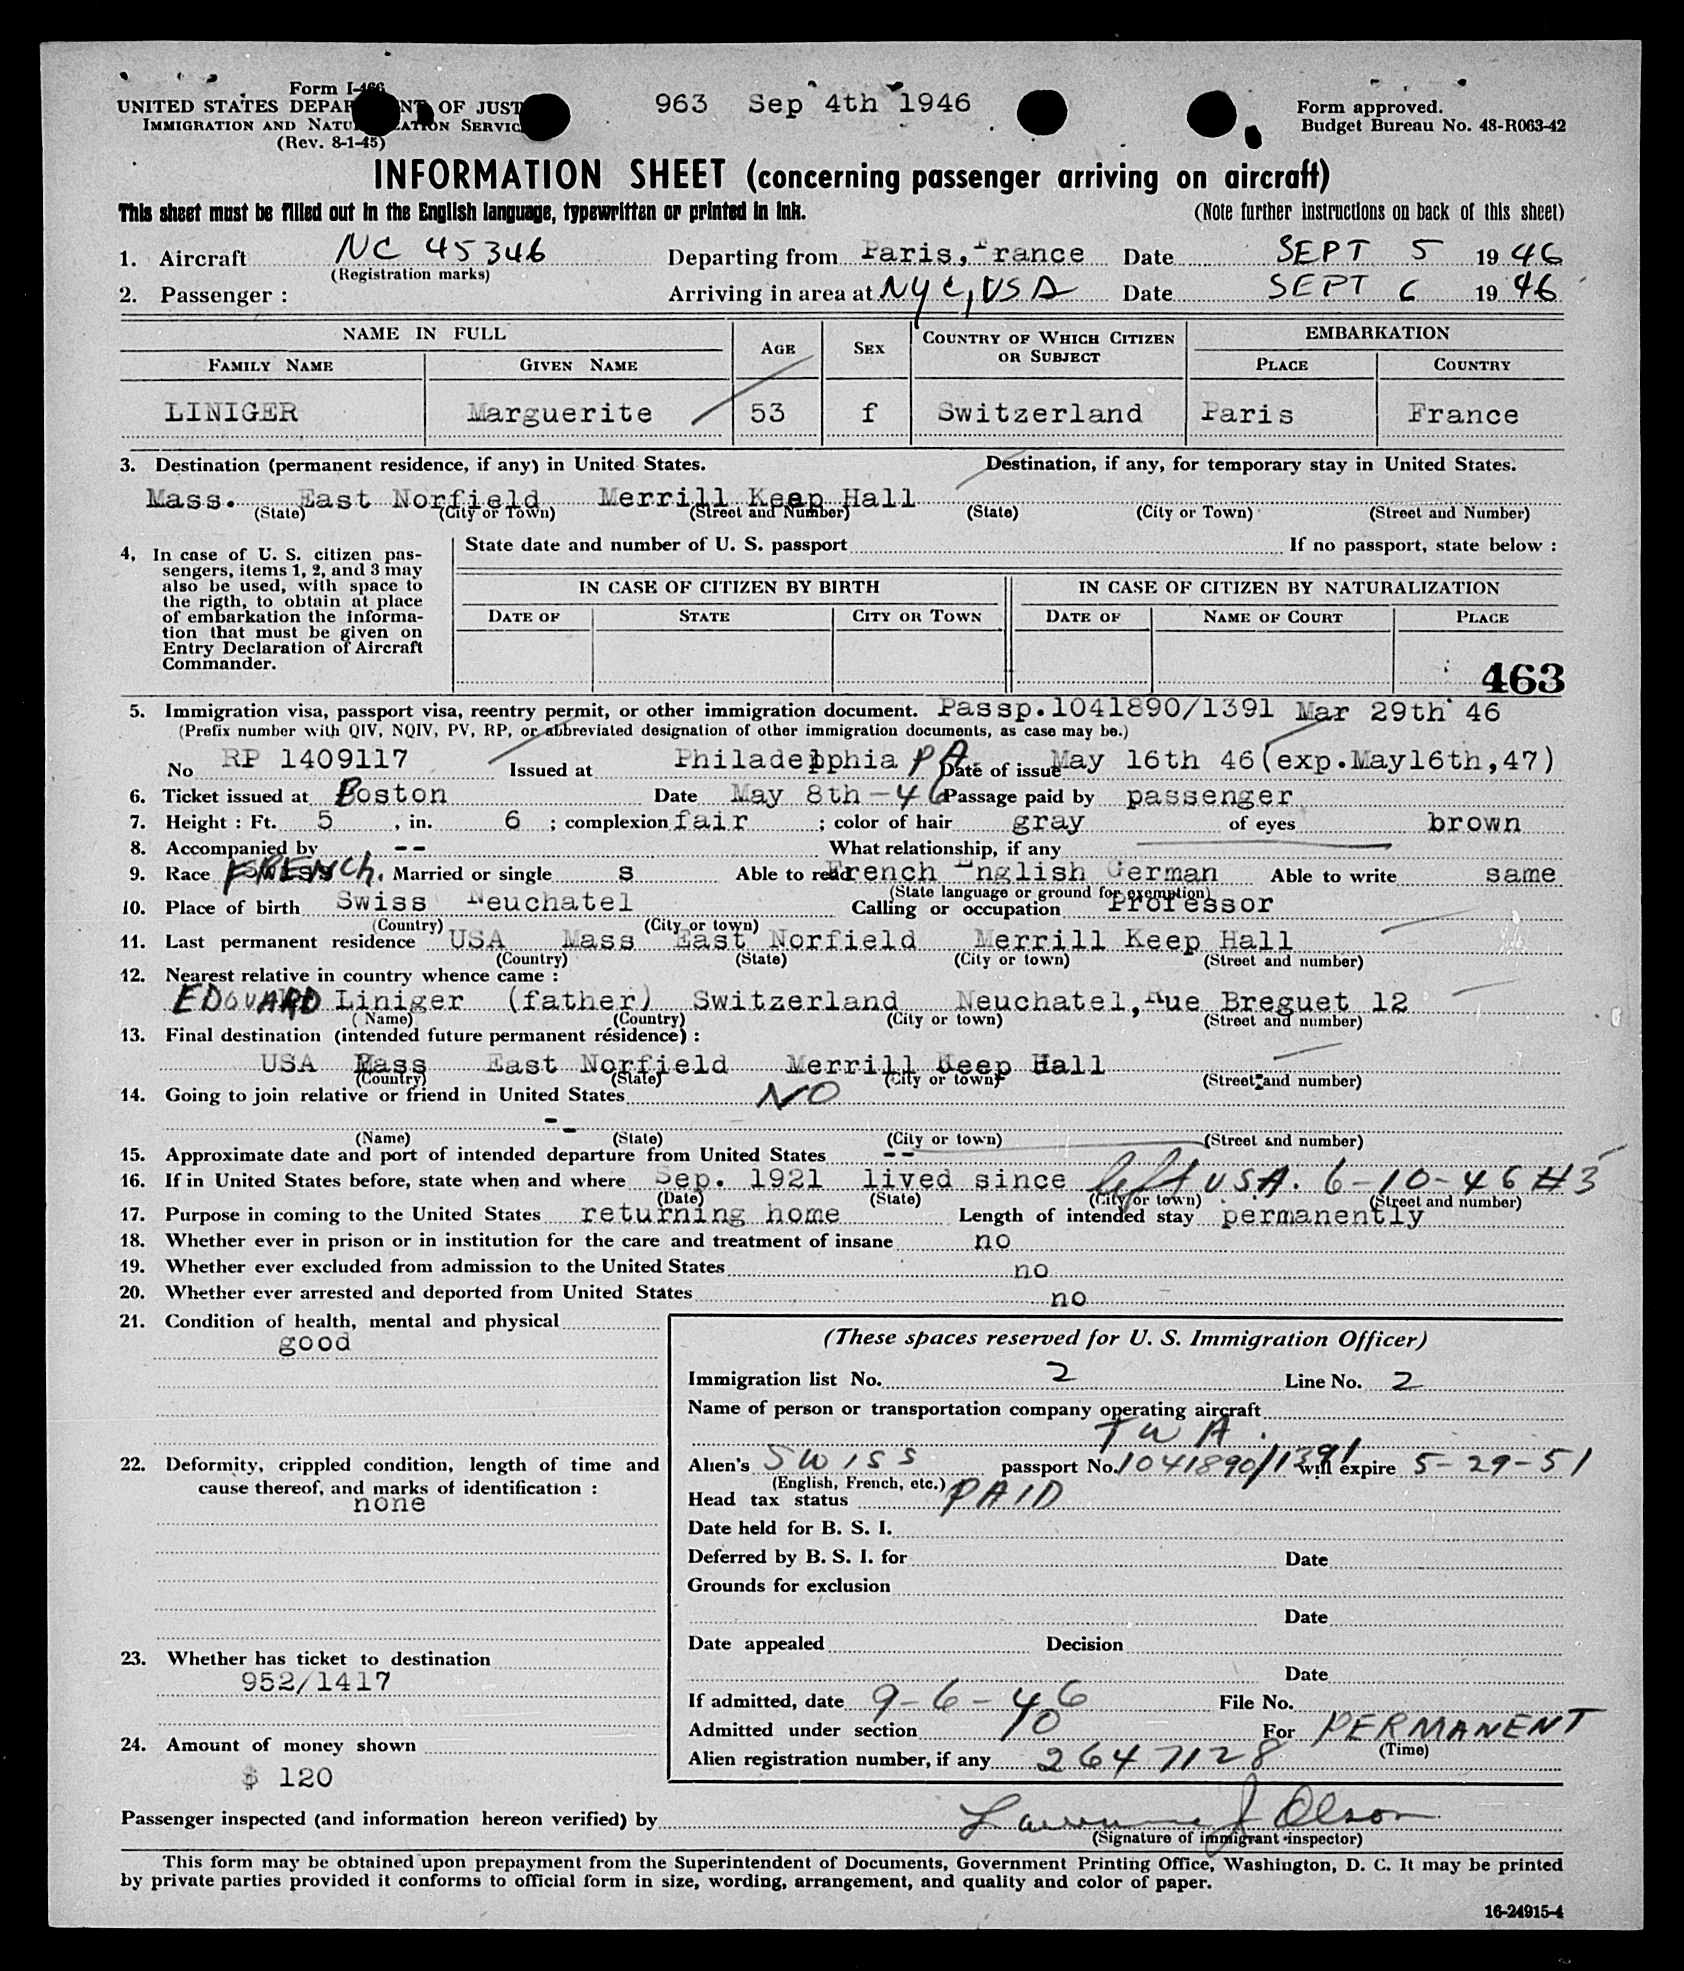 Form I-466
UNITED STATES DEPARTMENT OF JUSTICE
IMMIGRATION AND NATURALIZATION SERVICE
(Rev. 8-1-45)
963 Sep 4th 1946
Form approved.
Budget Bureau No. 48-R063-42
INFORMATION SHEET (concerning passenger arriving on aircraft)
This sheet must be filled out in the English language, typewritten or printed in ink. (Note further instructions on back of this sheet)
1. Aircraft NC 45346 Departing from Paris, France Date SEPT 5 1946
(Registration marks)
2. Passenger : Arriving in area at NYC, USA Date SEPT 6 1946
NAME IN FULL AGE SEX COUNTRY OF WHICH CITIZEN OR SUBJECT EMBARKATION
FAMILY NAME GIVEN NAME PLACE COUNTRY
LINIGER Marguerite 53 f Switzerland Paris France
3. Destination (permanent residence, if any) in United States. Destination, if any, for temporary stay in United States.
Mass. East Norfield Merrill Keep Hall
(State) (City or Town) (Street and Number) (State) (City or Town) (Street and Number)
4, In case of U. S. citizen pas-
sengers, items 1, 2, and 3 may
also be used, with space to
the rigth, to obtain at place
of embarkation the informa-
tion that must be given on
Entry Declaration of Aircraft
Commander.
State date and number of U. S. passport If no passport, state below :
IN CASE OF CITIZEN BY BIRTH IN CASE OF CITIZEN BY NATURALIZATION
DATE OF STATE CITY OR TOWN DATE OF NAME OF COURT PLACE
463
5. Immigration visa, passport visa, reentry permit, or other immigration document. Passp.1041890/1391 Mar 29th 46
(Prefix number with QIV, NQIV, PV, RP, or abbreviated designation of other immigration documents, as case may be.)
No RP 1409117 Issued at Philadelphia PA. Date of issue May 16th 46(exp.May16th,47)
6. Ticket issued at Boston Date May 8th -46 Passage paid by passenger
7. Height : Ft. 5 , in. 6 ; complexion fair ; color of hair gray of eyes brown
8. Accompanied by -- What relationship, if any
9. Race FRENCH. Married or single s Able to read French English German Able to write same
(State language or ground for exemption)
10. Place of birth Swiss Neuchatel Calling or occupation Professor
(Country) (City or town)
11. Last permanent residence USA Mass East Norfield Merrill Keep Hall
(Country) (State) (City or town) (Street and number)
12. Nearest relative in country whence came :
EDOUARD Liniger (father) Switzerland Neuchatel, Rue Breguet 12
(Name) (Country) (City or town) (Street and number)
13. Final destination (intended future permanent résidence) :
USA Mass East Norfield Merrill Keep Hall
(Country) (State) (City or town) (Street and number)
14. Going to join relative or friend in United States NO
--
(Name) (State) (City or town) (Street and number)
15. Approximate date and port of intended departure from United States --
16. If in United States before, state when and where Sep. 1921 lived since left USA. 6-10-46 #3
(Date) (State) (City or town) (Street and number)
17. Purpose in coming to the United States returning home Length of intended stay permanently
18. Whether ever in prison or in institution for the care and treatment of insane no
19. Whether ever excluded from admission to the United States no
20. Whether ever arrested and deported from United States no
21. Condition of health, mental and physical
good
22. Deformity, crippled condition, length of time and
cause thereof, and marks of identification :
none
23. Whether has ticket to destination
952/1417
24. Amount of money shown
$ 120
(These spaces reserved for U. S. Immigration Officer)
Immigration list No. 2 Line No. 2
Name of person or transportation company operating aircraft
TWA.
Alien's SWISS passport No. 1041890/1391 will expire 5-29-51
(English, French, etc.)
Head tax status PAID
Date held for B. S. I.
Deferred by B. S. I. for Date
Grounds for exclusion
Date
Date appealed Decision
Date
If admitted, date 9-6-46 File No.
Admitted under section 10 For PERMANENT
(Time)
Alien registration number, if any 2647128
Passenger inspected (and information hereon verified) by Lawrence J Olson
(Signature of immigrant inspector)
This form may be obtained upon prepayment from the Superintendent of Documents, Government Printing Office, Washington, D. C. It may be printed
by private parties provided it conforms to official form in size, wording, arrangement, and quality and color of paper.
16-24915-4